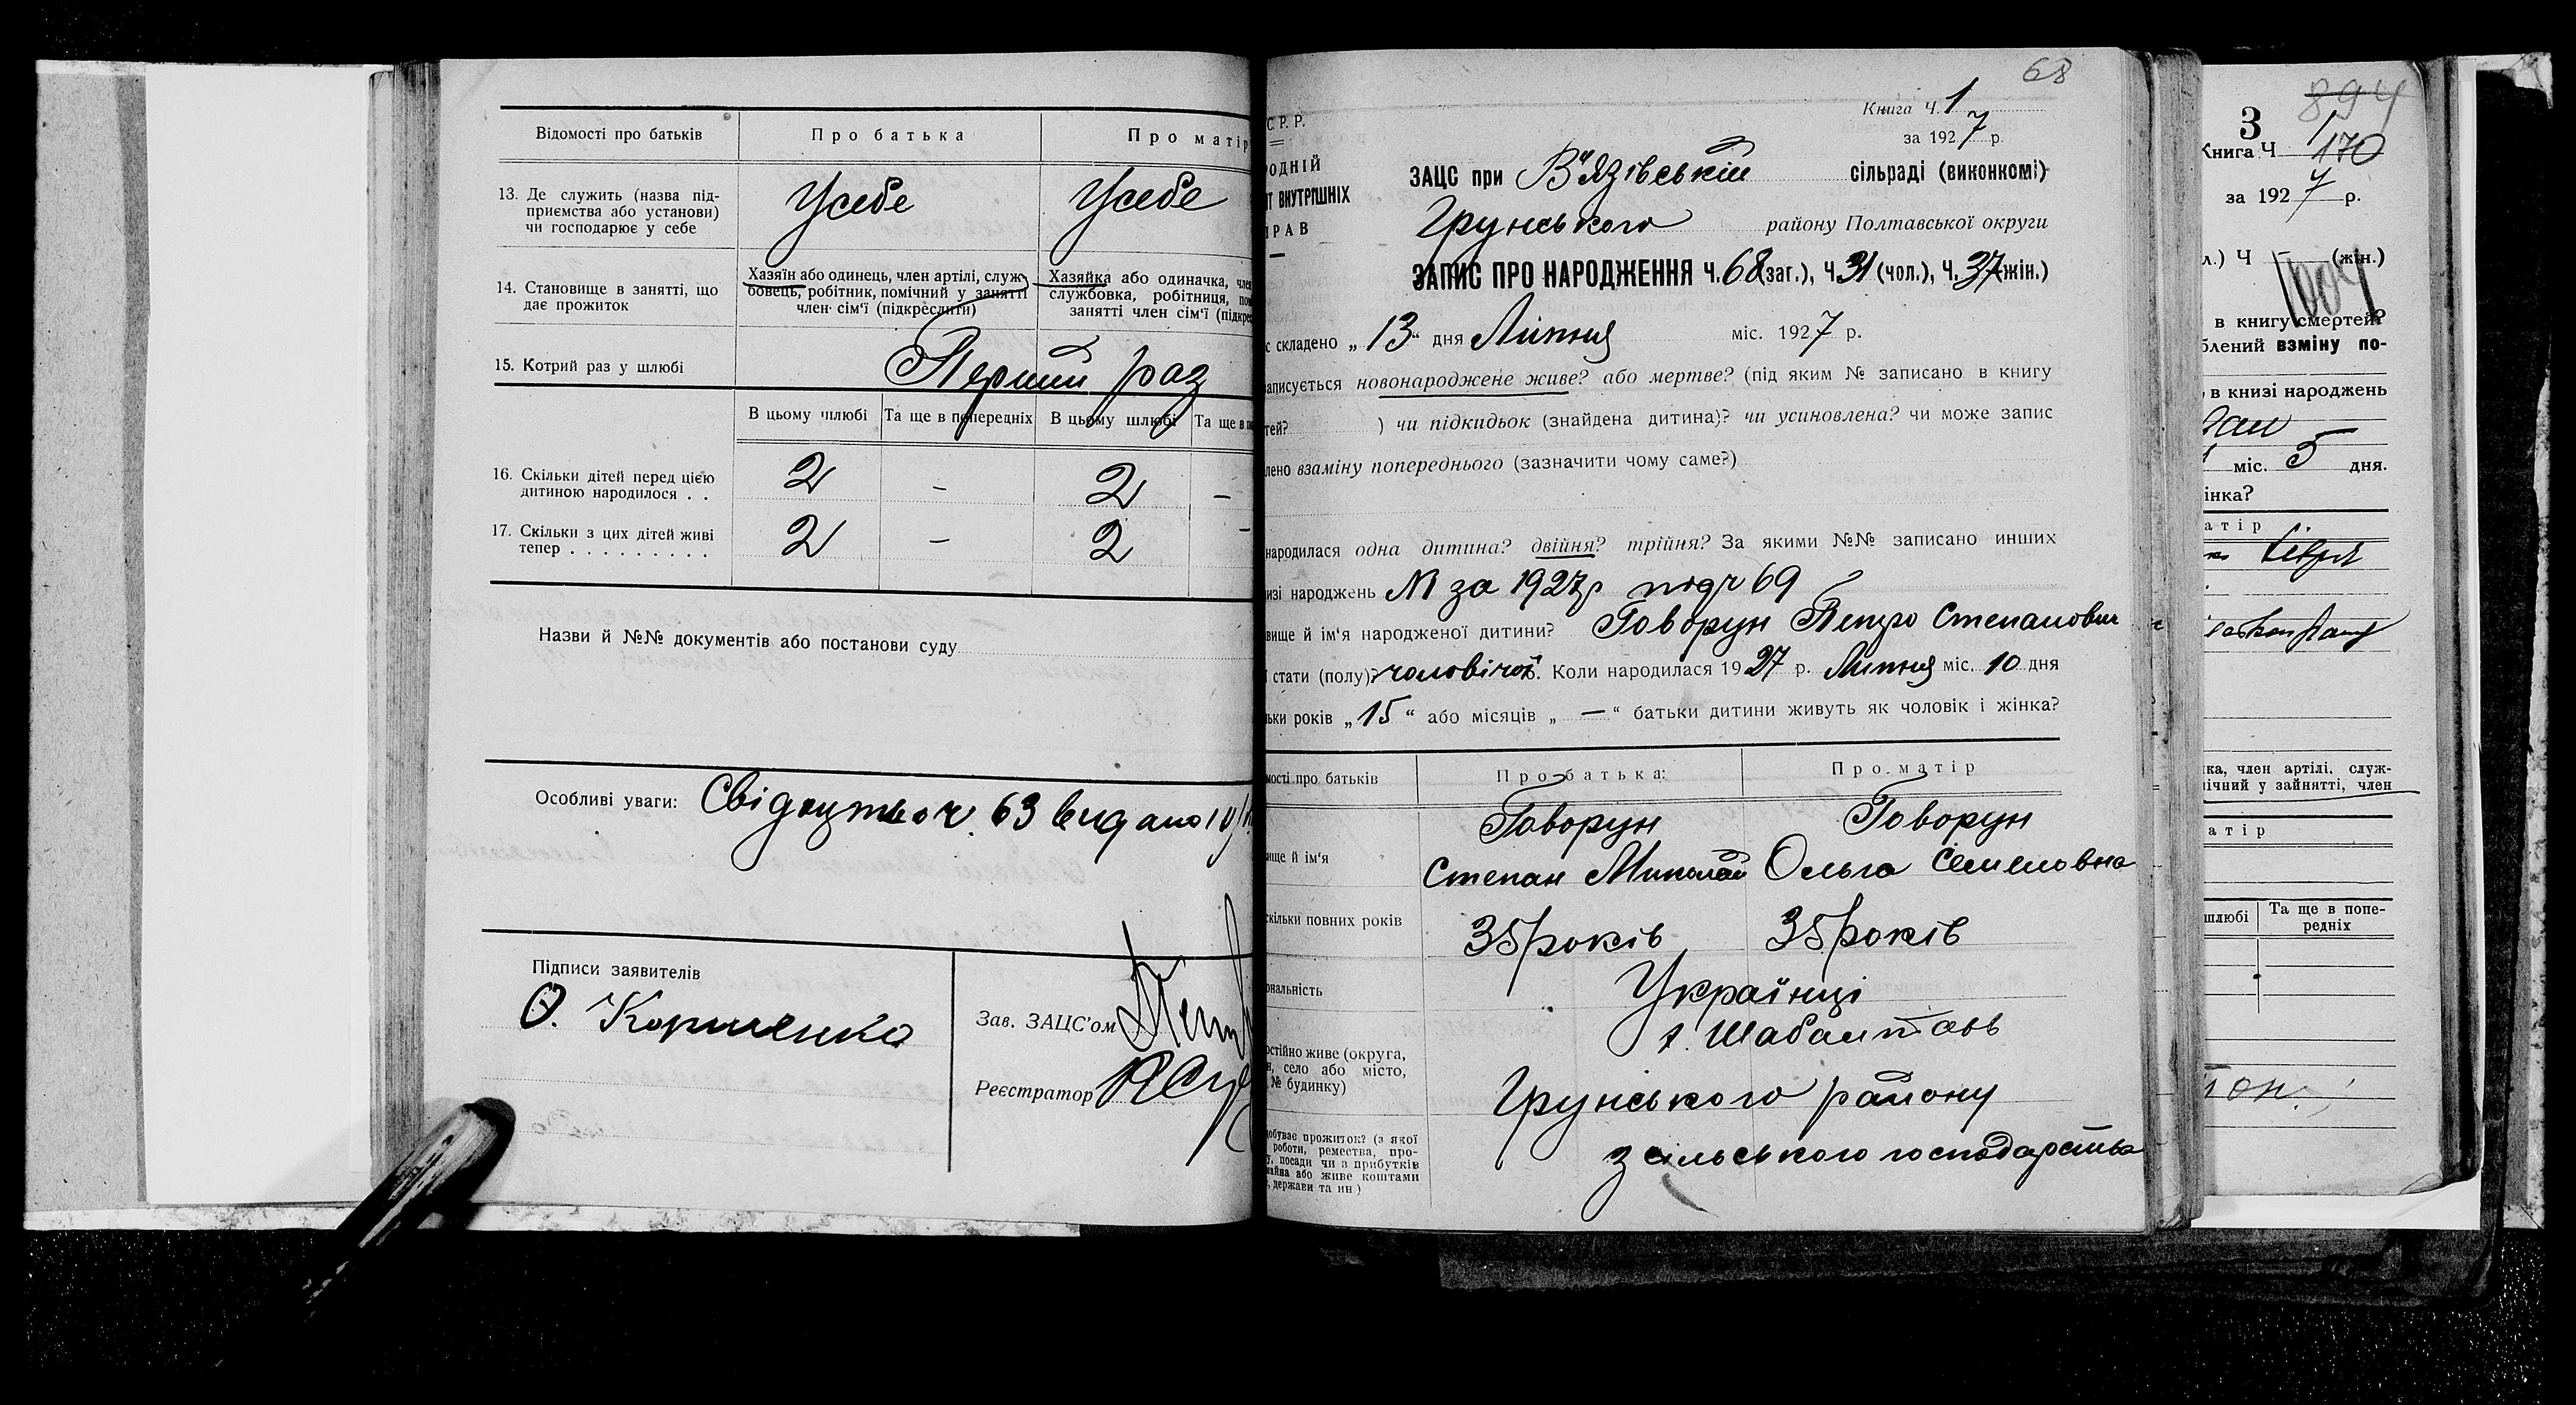 Відомості про батьків
Про батька
Про матір
13. Де служить (назва під-
приємства або установи)
чи господарює у себе
Усебе
Усебе
14. Становище в занятті, що
дає прожиток
Хазяїн або одинець, член артілі, служ-
бовець, робітник, помічний у занятті
член сім'ї (підкреслити)
Хазяйка або одиначка, член
службовка, робітниця, по
занятті член сім'ї (підкре
15. Котрий раз у шлюбі
Перший раз
В цьому шлюбі
Та ще в попередніх
В цьому шлюбі
Та ще в
16. Скільки дітей перед цією
дитиною народилося . .
2 – 2 –
17. Скільки з цих дітей живі
тепер . . . . . . . . .
2 – 2 –
Назви й №№ документів або постанови суду
Особливі уваги:
ч. 63 видано
Підписи заявителів
О. Корниенко
Зав. ЗАЦС'ом
Реєстратор
68
С.Р.Р.
РОДНІЙ
ВНУТРІШНІХ
ПРАВ
Книга Ч. 1
за 1927 р.
ЗАЦС при В'язівській сільраді (виконкомі)
Грунського району Полтавської округи
ЗАПИС ПРО НАРОДЖЕННЯ Ч. 68 (заг.), Ч. 31 (чол.), Ч. 37 (жін.)
с складено „ 13 " дня Липня міс. 1927 р.
записується новонароджене живе? або мертве? (під яким № записано в книгу
тей? ) чи підкидьок (знайдена дитина)? чи усиновлена? чи може запис
лено взаміну попереднього (зазначити чому саме?)
народилася одна дитина? двійня? трійня? За якими №№ записано инших
изі народжень №1 за 1927р под ч 69
вище й ім'я народженої дитини? Говорун Петро Степанович
стати (полу)? чоловічої. Коли народилася 1927 р. Липня міс. 10 дня
льки років „ 15 " або місяців „ — " батьки дитини живуть як чоловік і жінка?
мості про батьків
Про батька:
Про матір
вище й ім'я
Говорун
Степан Миколай
Говорун
Ольга Семеновна
скільки повних років
35 років
35 років
ональність
Українці
остійно живе (округа,
н, село або місто,
№ будинку)
Грунського району
добуває прожиток? (з якої
роботи, ремества, про-
у, посади чи з прибутків
майна або живе коштами
, держави та ин.)
з сільського господарства
894
3
Книга Ч 1
170
за 1927 р.
л.) Ч (жін.)
1004
в книгу смертей?
блений взміну по-
, в книзі народжень
міс. 5 дня.
інка?
атір
ка, член артілі, служ-
ічний у зайнятті, член
атір
шлюбі
Та ще в попе-
редніх